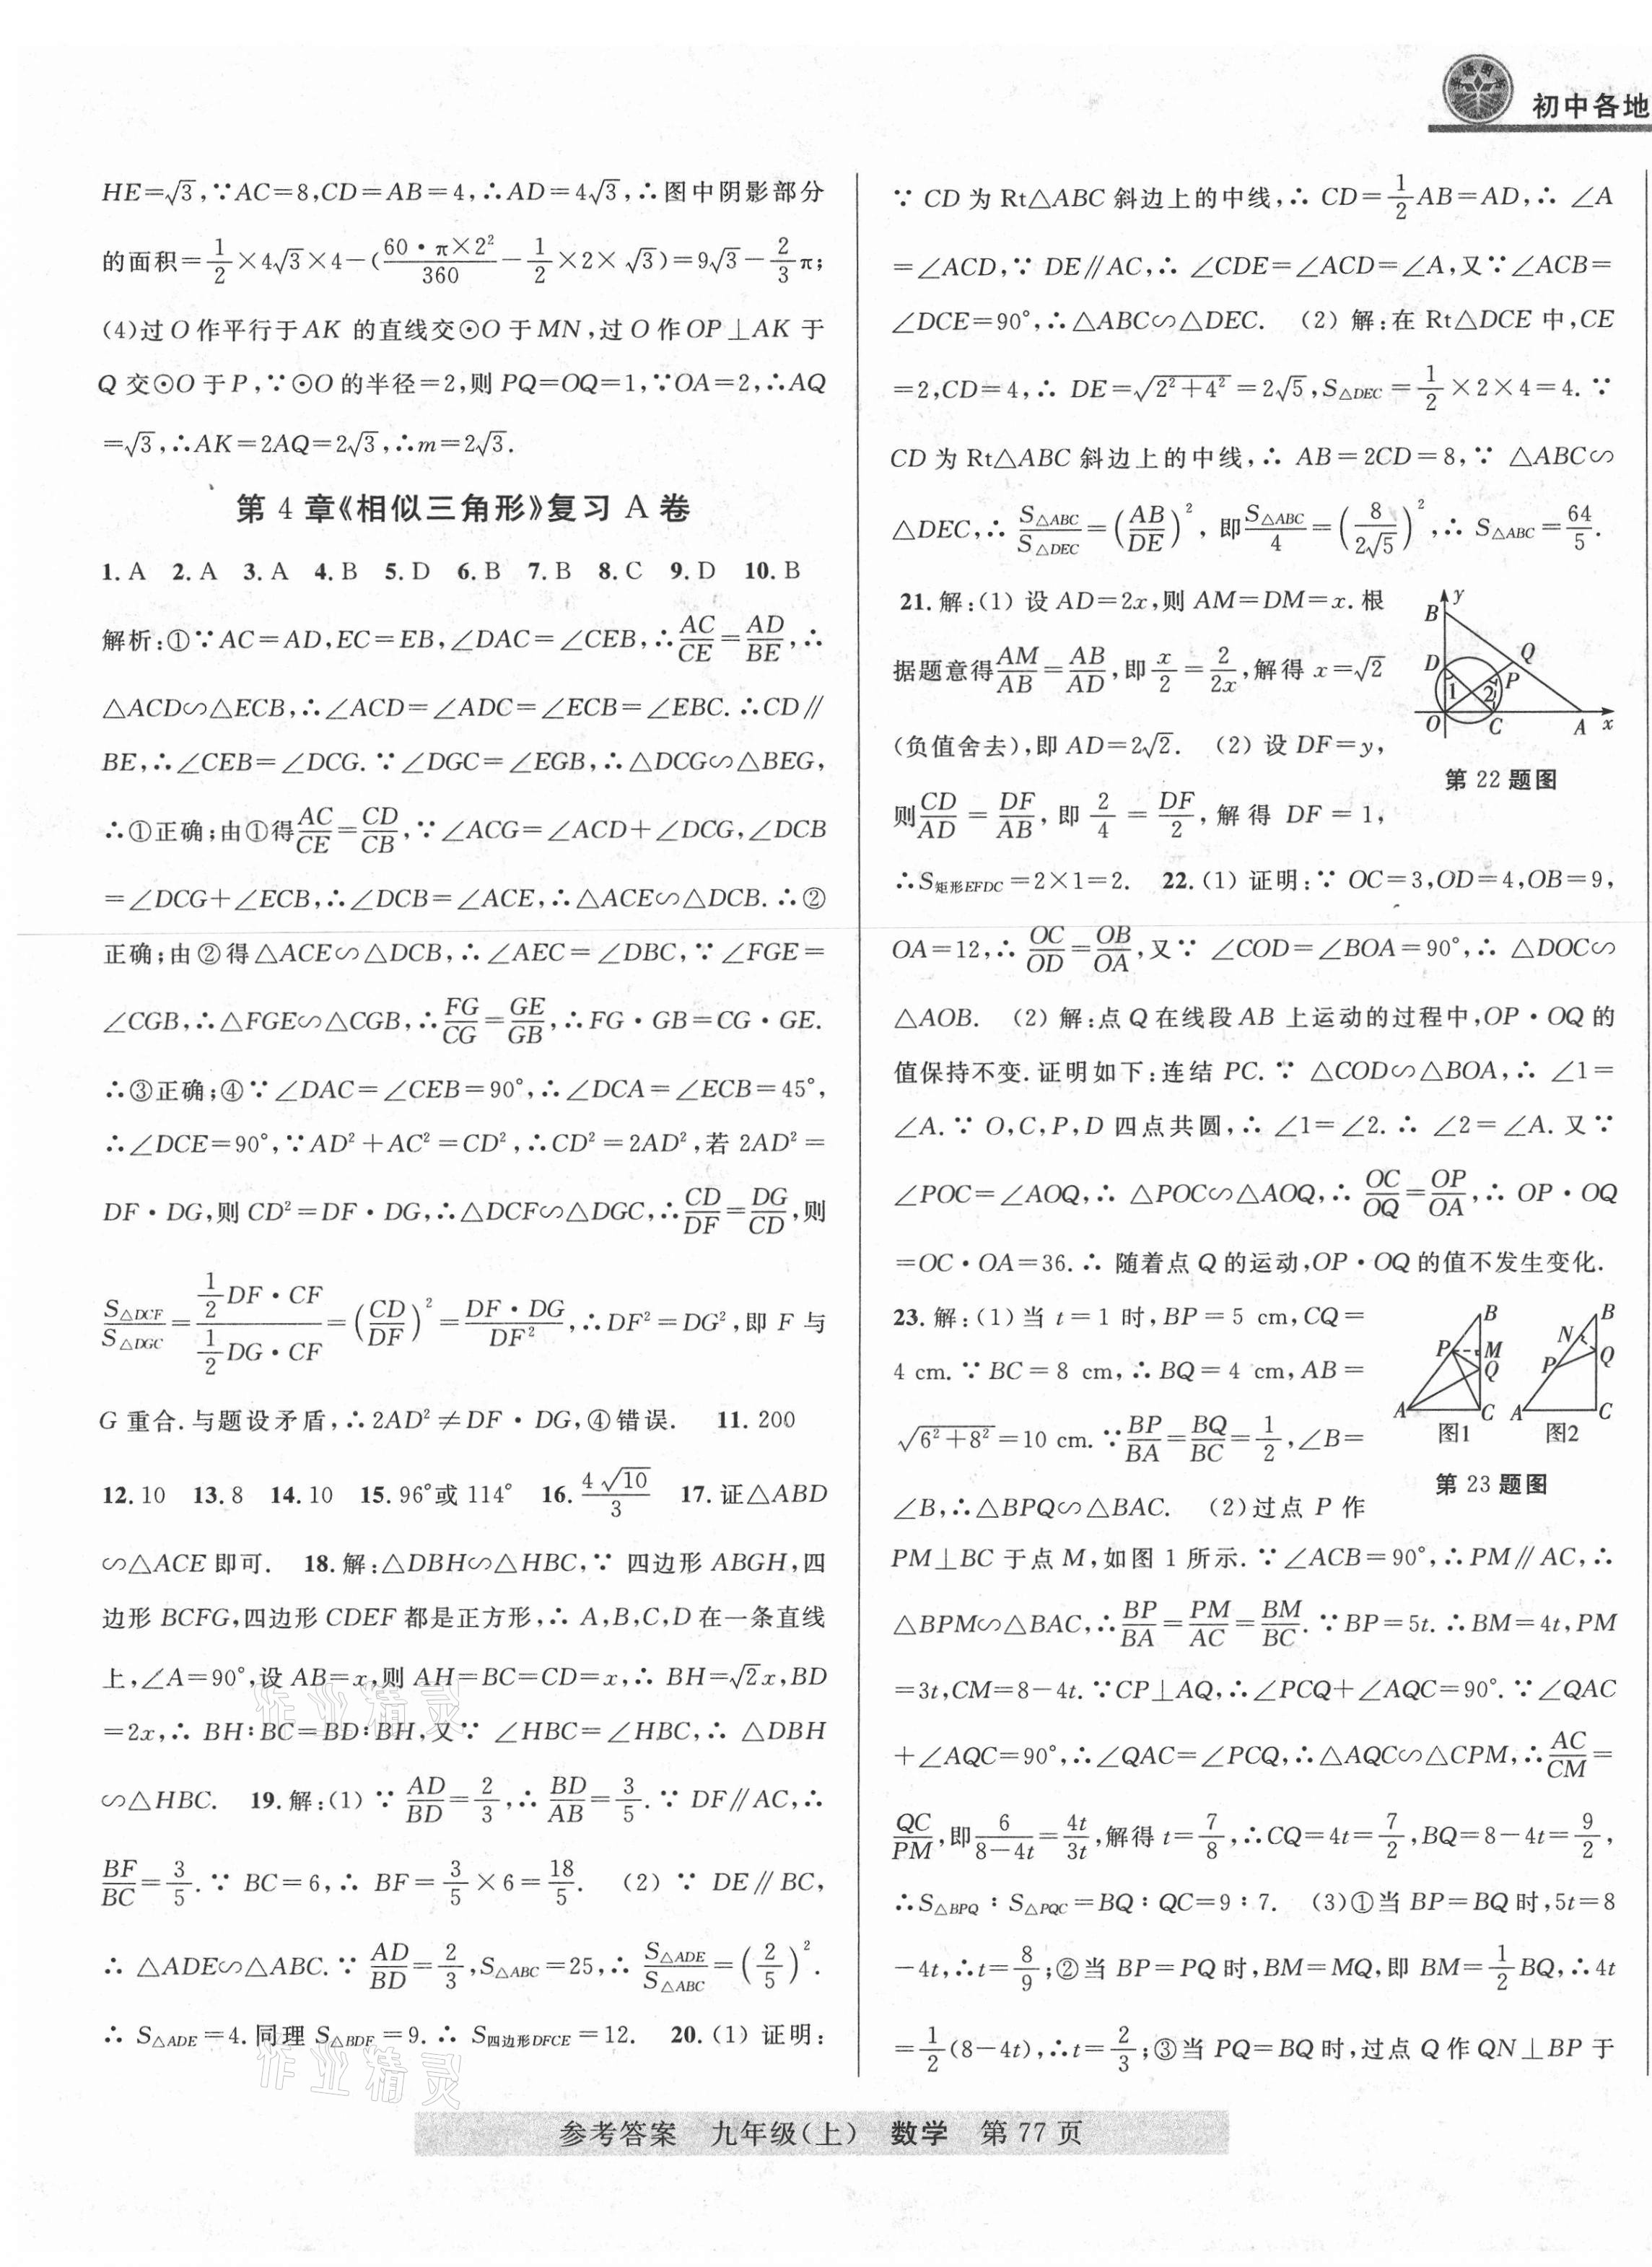 初中各地
HE=√3,∵AC=8,CD=AB=4,∴AD=4√3,∴图中阴影部分
的面积=1/2×4√3×4-(60·π×2²/360-1/2×2×√3)=9√3-2/3π;
(4)过O作平行于AK的直线交⊙O于MN,过O作OP⊥AK于
Q交⊙O于P,∵⊙O的半径=2,则PQ=OQ=1,∵OA=2,∴AQ
=√3,∴AK=2AQ=2√3,∴m=2√3.
第4章《相似三角形》复习A卷
1.A 2.A 3.A 4.B 5.D 6.B 7.B 8.C 9.D 10.B
解析:①∵AC=AD,EC=EB,∠DAC=∠CEB,∴AC/CE=AD/BE,∴
△ACD∽△ECB,∴∠ACD=∠ADC=∠ECB=∠EBC.∴CD∥
BE,∴∠CEB=∠DCG.∵∠DGC=∠EGB,∴△DCG∽△BEG,
∴①正确;由①得AC/CE=CD/CB,∵∠ACG=∠ACD+∠DCG,∠DCB
=∠DCG+∠ECB,∴∠DCB=∠ACE,∴△ACE∽△DCB.∴②
正确;由②得△ACE∽△DCB,∴∠AEC=∠DBC,∵∠FGE=
∠CGB,∴△FGE∽△CGB,∴FG/CG=GE/GB,∴FG·GB=CG·GE.
∴③正确;④∵∠DAC=∠CEB=90°,∴∠DCA=∠ECB=45°,
∴∠DCE=90°,∵AD²+AC²=CD²,∴CD²=2AD²,若2AD²=
DF·DG,则CD²=DF·DG,∴△DCF∽△DGC,∴CD/DF=DG/CD,则
S△DCF/S△DGC=(1/2DF·CF)/(1/2DG·CF)=(CD/DF)²=DF·DG/DF²,∴DF²=DG²,即F与
G重合.与题设矛盾,∴2AD²≠DF·DG,④错误. 11.200
12.10 13.8 14.10 15.96°或114° 16.4√10/3 17.证△ABD
∽△ACE即可. 18.解:△DBH∽△HBC,∵四边形ABGH,四
边形BCFG,四边形CDEF都是正方形,∴A,B,C,D在一条直线
上,∠A=90°,设AB=x,则AH=BC=CD=x,∴BH=√2x,BD
=2x,∴BH∶BC=BD∶BH,又∵∠HBC=∠HBC,∴△DBH
∽△HBC. 19.解:(1)∵AD/BD=2/3,∴BD/AB=3/5.∵DF∥AC,∴
BF/BC=3/5.∵BC=6,∴BF=3/5×6=18/5. (2)∵DE∥BC,
∴△ADE∽△ABC.∵AD/BD=2/3,S△ABC=25,∴S△ADE/S△ABC=(2/5)².
∴S△ADE=4.同理S△BDF=9.∴S四边形DFCE=12. 20.(1)证明:
∵CD为Rt△ABC斜边上的中线,∴CD=1/2AB=AD,∴∠A
=∠ACD,∵DE∥AC,∴∠CDE=∠ACD=∠A,又∵∠ACB=
∠DCE=90°,∴△ABC∽△DEC. (2)解:在Rt△DCE中,CE
=2,CD=4,∴DE=√(2²+4²)=2√5,S△DEC=1/2×2×4=4.∵
CD为Rt△ABC斜边上的中线,∴AB=2CD=8,∵△ABC∽
△DEC,∴S△ABC/S△DEC=(AB/DE)²,即S△ABC/4=(8/2√5)²,∴S△ABC=64/5.
21.解:(1)设AD=2x,则AM=DM=x.根
据题意得AM/AB=AB/AD,即x/2=2/2x,解得x=√2
(负值舍去),即AD=2√2. (2)设DF=y,
则CD/AD=DF/AB,即2/4=DF/2,解得DF=1,
B y D Q P 1 2 O C A x
第22题图
∴S矩形EFDC=2×1=2. 22.(1)证明:∵OC=3,OD=4,OB=9,
OA=12,∴OC/OD=OB/OA,又∵∠COD=∠BOA=90°,∴△DOC∽
△AOB. (2)解:点Q在线段AB上运动的过程中,OP·OQ的
值保持不变.证明如下:连结PC.∵△COD∽△BOA,∴∠1=
∠A.∵O,C,P,D四点共圆,∴∠1=∠2.∴∠2=∠A.又∵
∠POC=∠AOQ,∴△POC∽△AOQ,∴OC/OQ=OP/OA,∴OP·OQ
=OC·OA=36.∴随着点Q的运动,OP·OQ的值不发生变化.
23.解:(1)当t=1时,BP=5 cm,CQ=
4 cm.∵BC=8 cm,∴BQ=4 cm,AB=
√(6²+8²)=10 cm.∵BP/BA=BQ/BC=1/2,∠B=
∠B,∴△BPQ∽△BAC. (2)过点P作
B P M Q A C 图1
B N Q P A C 图2
第23题图
PM⊥BC于点M,如图1所示.∵∠ACB=90°,∴PM∥AC,∴
△BPM∽△BAC,∴BP/BA=PM/AC=BM/BC.∵BP=5t.∴BM=4t,PM
=3t,CM=8-4t.∵CP⊥AQ,∴∠PCQ+∠AQC=90°.∵∠QAC
+∠AQC=90°,∴∠QAC=∠PCQ,∴△AQC∽△CPM,∴AC/CM=
QC/PM,即6/(8-4t)=4t/3t,解得t=7/8,∴CQ=4t=7/2,BQ=8-4t=9/2,
∴S△BPQ∶S△PQC=BQ∶QC=9∶7. (3)①当BP=BQ时,5t=8
-4t,∴t=8/9;②当BP=PQ时,BM=MQ,即BM=1/2BQ,∴4t
=1/2(8-4t),∴t=2/3;③当PQ=BQ时,过点Q作QN⊥BP于
作业精灵
作业精灵
参考答案 九年级(上) 数学 第77页